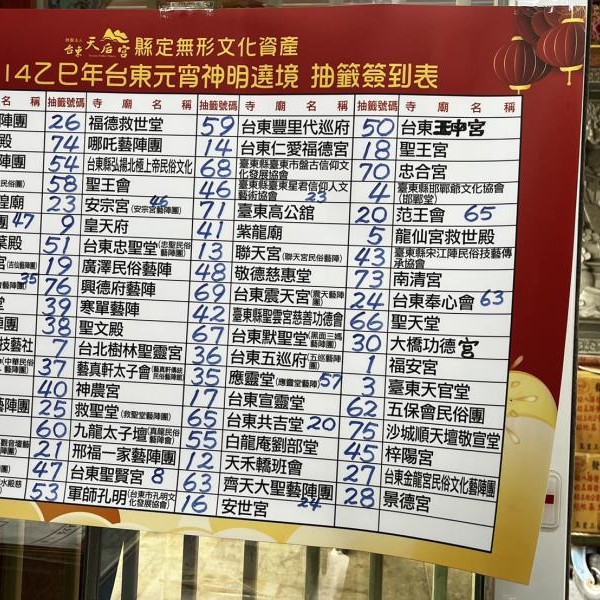 台東天后宮 縣定無形文化資產
14乙巳年台東元宵神明遶境 抽籤簽到表
名 稱 抽籤號碼 寺 廟 名 稱 抽籤號碼 寺 廟 名 稱 抽籤號碼 寺 廟 名 稱
陣團 26 福德救世堂 59 台東豐里代巡府 50 台東王中宮
殿 74 哪吒藝陣團 14 台東仁愛福德宮 18 聖王宮
陣團 54 台東縣弘揚北極上帝民俗文化 68 臺東縣臺東市盤古信仰文化發展協會 70 忠合宮
民俗團) 58 聖王會 46 臺東縣臺東星君信仰人文藝術協會 23 4 臺東縣邯鄲爺文化協會(邯鄲堂)
皇廟 23 安宗宮(安宗宮藝陣團) 46 71 臺東高公館 20 范王會 65
團 47 9 皇天府 41 紫龍廟 5 龍仙宮救世殿
葉殿 51 台東忠聖堂(忠聖民俗藝陣團) 13 聯天宮(聯天宮民俗藝陣) 43 臺東縣宋江陣民俗技藝傳承協會
宮(吉仙藝陣團) 19 廣澤民俗藝陣 48 敬德慈惠堂 73 南清宮
35 76 興德府藝陣 69 台東震天宮(震天藝陣團) 24 台東奉心會 63
堂 39 寒單藝陣 42 臺東縣聖雲宮慈善功德會 66 聖天堂
陣團 38 聖文殿 67 台東默聖堂(黑面三媽藝陣團) 30 大橋功德宮
技藝社 7 台北樹林聖靈宮 36 台東五巡府(五巡藝陣團) 1 福安宮
(中華民俗 37 藝真軒太子會(藝真軒傳統民俗藝陣館) 35 應靈堂(應靈堂藝陣) 57 3 臺東天官堂
40 神農宮 17 台東宣靈堂 62 五保會民俗團
藝陣團 25 救聖堂(救聖堂藝陣) 65 台東共吉堂 20 75 沙城順天壇敬宣堂
60 九龍太子壇(真龍民俗藝陣) 55 白龍庵劉部堂 45 梓陽宮
觀音壇藝 21 邢福一家藝陣團 12 天禾轎班會 27 台東金龍宮民俗文化藝陣團
水殿慈 47 台東聖賢宮 8 63 齊天大聖藝陣團 28 景德宮
53 軍師孔明(台東市孔明文化發展協會) 16 安世宮 24